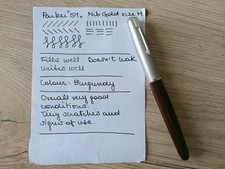 Parker "51" Nib Gold size M
Fills well Doesn't leak
Writes well
Colour: Burgundy
Overall very good
conditions.
Tiny scratches and
signs of use.